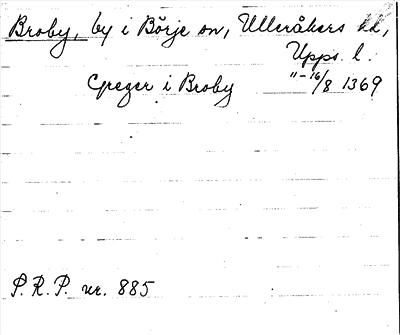 Broby, by i Börje sn, Ulleråkers hd,
Upps. l.
Greger i Broby "-16/8 1369
P.R.P. nr. 885